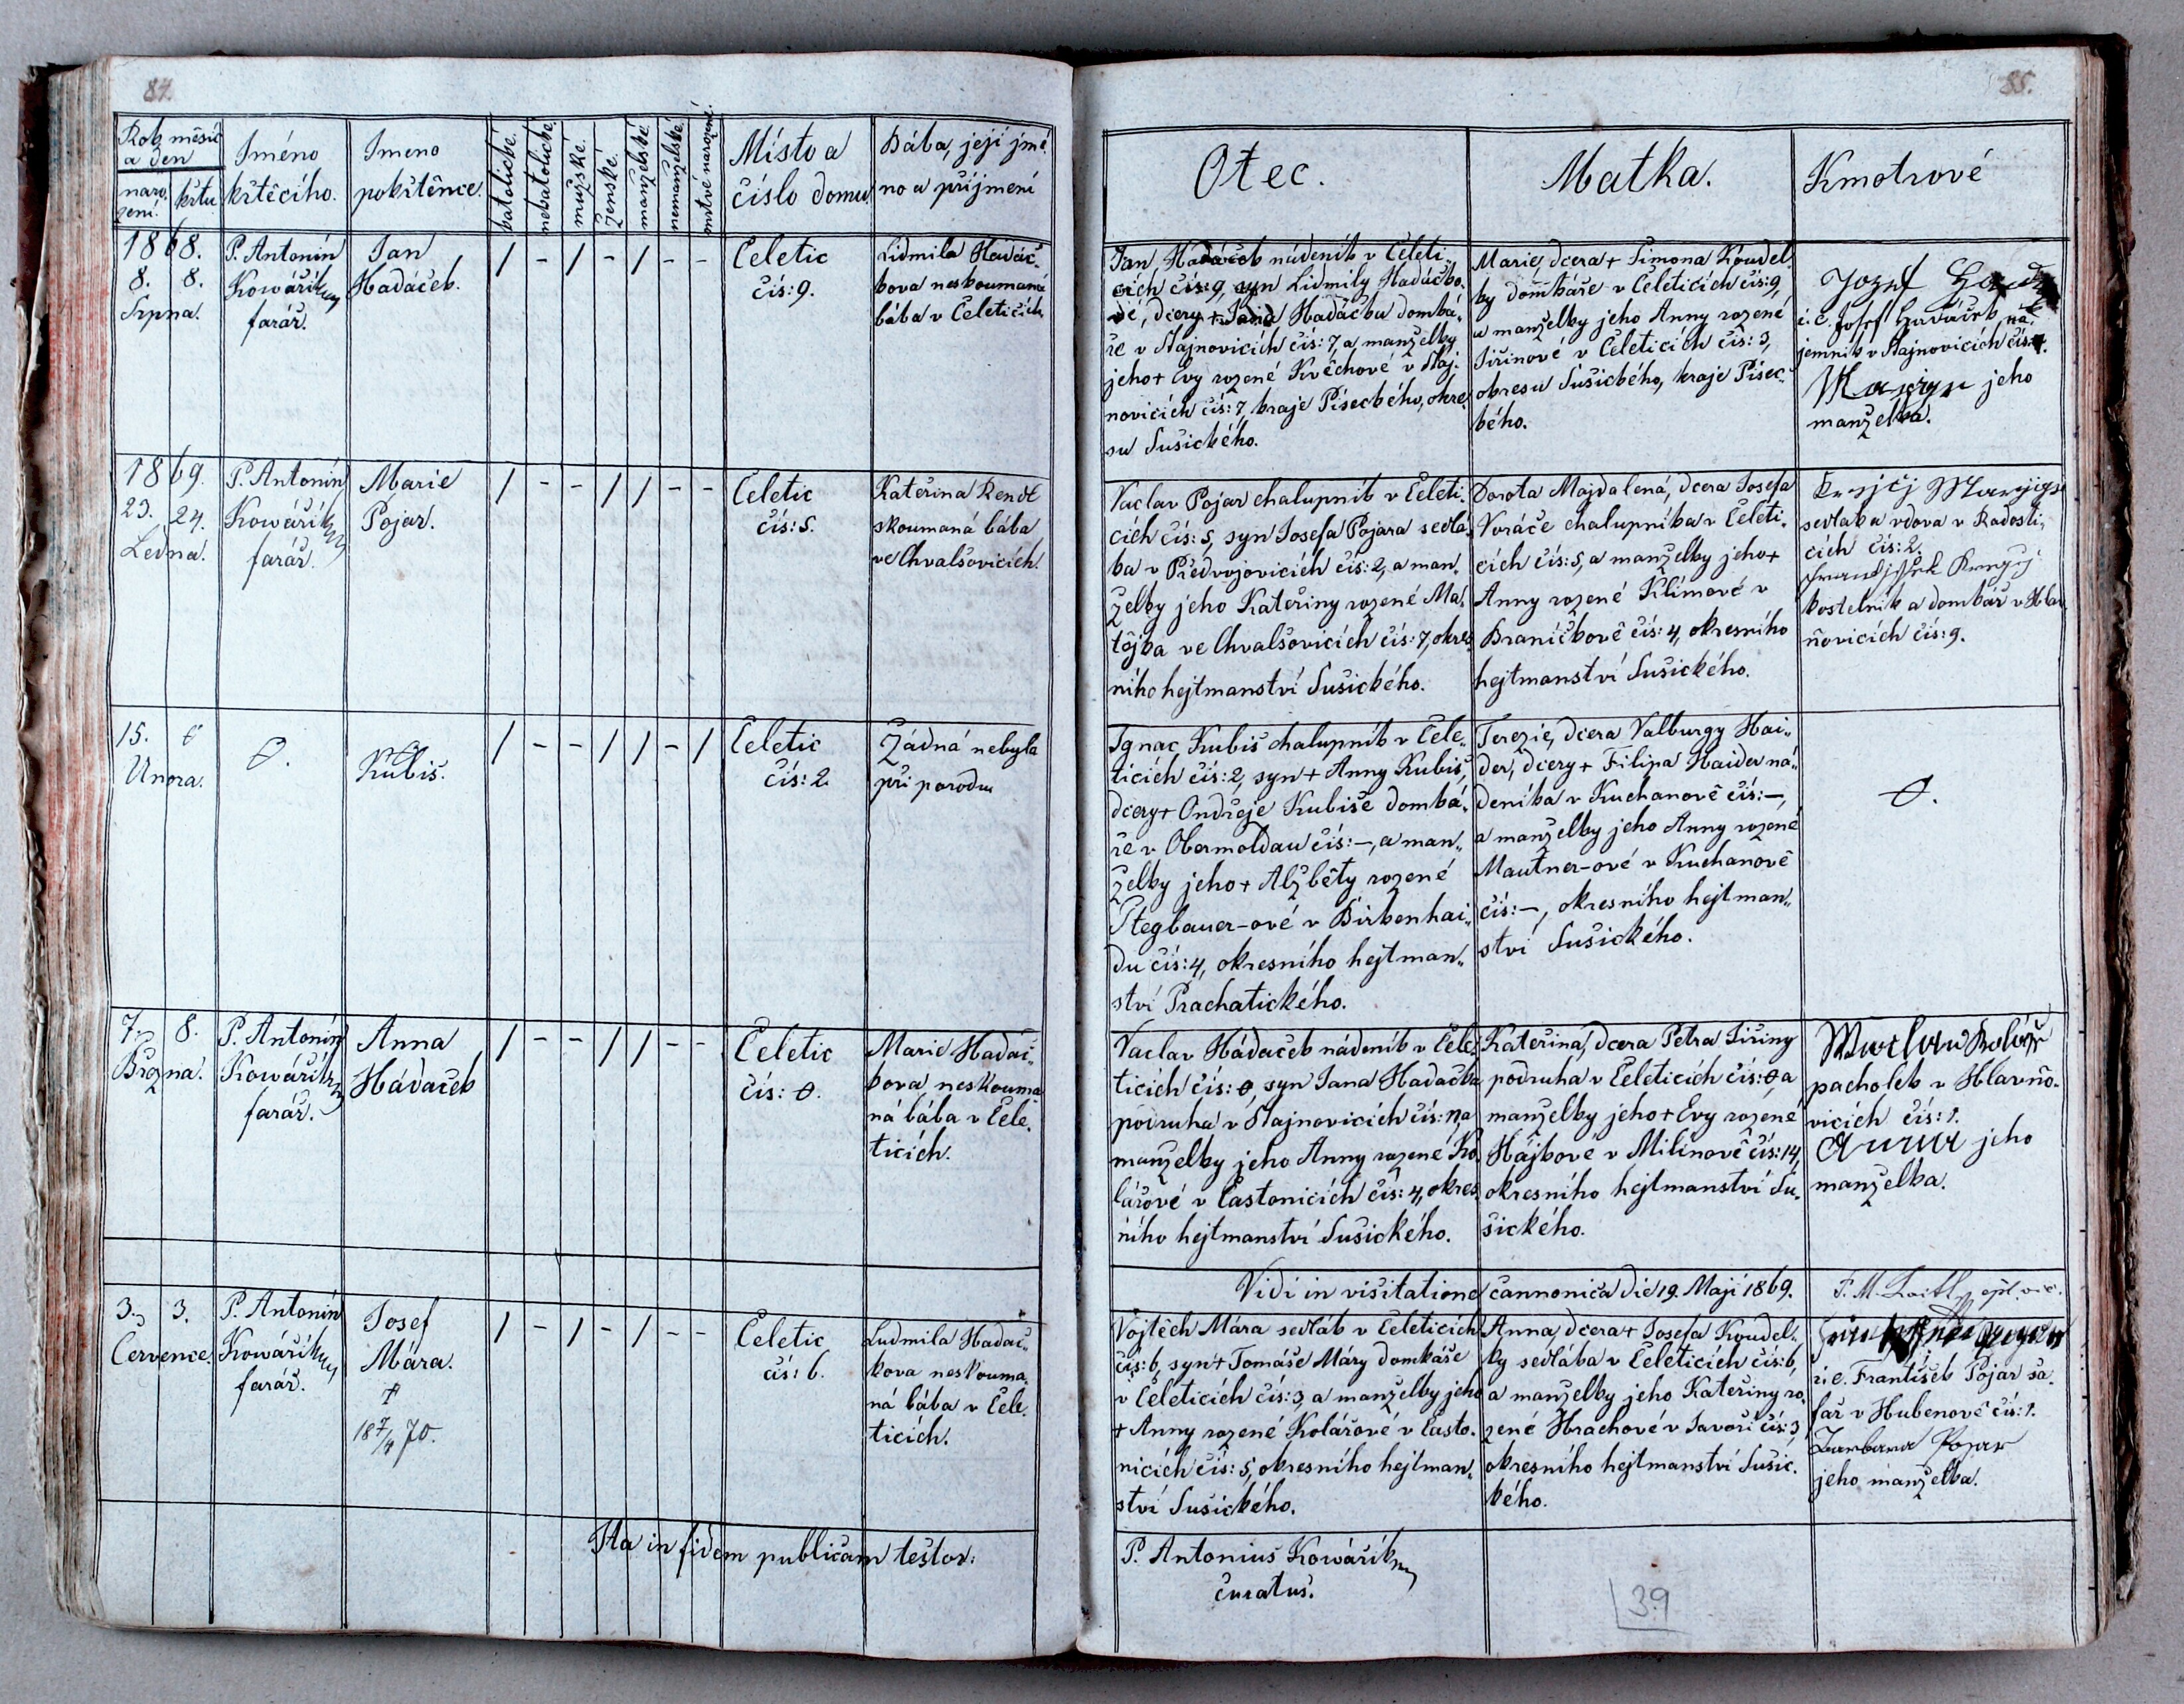 84.
Rok, měsíc
a den
naro-
zení.
křtu
Jméno
křtěcího.
Jmeno
pokřtěnce.
katolické.
nekatolické.
mužské.
ženské.
manželské.
nemanželské.
mrtvě narozené.
Místo a
číslo domu
Bába, její jmé-
no a příjmení
1868.
8. 8.
Srpna.
P. Antonín
Kowářík
farář.
Jan
Hadáček.
/ - / - / - -
Čeletic
čís: 9.
Lidmila Hadáč-
kova neskoumaná
bába v Čeleticích
1869.
23. 24.
Ledna.
P. Antonín
Kowářík
farář.
Marie
Pojar.
/ - - / / - -
Čeletic
čís: 5.
Kateřina Rendl
skoumaná bába
ve Chvalšovicích.
15. 0
Unora.
0.
Kubiš.
/ - - / / - /
Čeletic
čís: 2
Žádná nebyla
při porodu
7. 8.
Brezna.
P. Antonín
Kowářík
farář.
Anna
Hádaček
/ - - / / - -
Čeletic
čís: 0.
Marie Hadač-
kova neskouma
ná bába v Čele-
ticích.
3. 3.
Července.
P. Antonín
Kowářík
farář.
Josef
Mára.
†
18 7/4 70.
/ - / - / - -
Čeletic
čís: 6.
Ludmila Hadač-
kova neskouma-
ná bába v Čele-
ticích.
Ita in fidem publicam testor:
85.
Otec.
Matka.
Kmotrové
Jan Hadáček nádeník v Čeleti-
cích čís: 9, syn Lidmily Hadáčko-
vé, dcery + Jana Hadáčka domká-
ře v Stajnovicích čís: 7, a manželky
jeho + Evy rozené Kvěchové v Staj-
novicích čís: 7, kraje Píseckého, okre-
su Sušického.
Marie, dcera + Šimona Koudel-
ky domkáře v Čeleticích čís: 9,
a manželky jeho Anny rozené
Jiřinové v Čeleticích čís: 3,
okresu Sušického, kraje Písec-
kého.
Jozef
i. e. Josef Hadáček ná-
jemník v Stajnovicích čís:
jeho
manželka.
Vaclav Pojar chalupník v Čeleti-
cích čís: 5, syn Josefa Pojara sedlá-
ka v Předvojovicích čís: 2, a man-
želky jeho Kateřiny rozené Ma-
tějka ve Chvalšovicích čís: 7, okres-
ního hejtmanství Sušického.
Dorota Majdalená, dcera Josefa
Voráče chalupníka v Čeleti-
cích čís: 5, a manželky jeho +
Anny rozené Klímové v
Braníčkově čís: 4, okresního
hejtmanství Sušického.
sedlaka vdova v Radosti-
cích čís: 2.
kostelník a domkář v Hlav-
ňovicích čís: 9.
Ignac Kubiš chalupník v Čele-
ticích čís: 2, syn + Anny Kubiš,
dcery + Ondřeje Kubiše domká-
ře v Obermoldau čís: –, a man-
želky jeho + Alžběty rozené
Stegbauer-ové v Birkenhai-
du čís: 4, okresního hejtman-
ství Prachatického.
Terezie, dcera Valburgy Hai-
der, dcery + Filipa Haider ná-
deníka v Kuchanově čís: –,
a manželky jeho Anny rozené
Mautner-ové v Kuchanově
čís: –, okresního hejtman-
ství Sušického.
0.
Vaclav Hádaček nádeník v Čele-
ticích čís: 0, syn Jana Hadačka
podruha v Stajnovicích čís: 17, a
manželky jeho Anny rozené Ko-
lářové v Častonicích čís: 4, okres-
ního hejtmanství Sušického.
Kateřina, dcera Petra Jiřiny
podruha v Čeleticích čís: 0, a
manželky jeho + Evy rozené
Hájkové v Milínově čís: 14,
okresního hejtmanství Su-
šického.
Waclaw Kolářř
pacholek v Hlavňo-
vicích čís: 1.
Anna jeho
manželka.
Vidi in visitatione cannonica die 19. Maji 1869.
Vojtěch Mára sedlák v Čeleticích
čís: 6, syn + Tomáše Máry domkáře
v Čeleticích čís: 3, a manželky jeho
+ Anny rozené Kolářové v Často-
nicích čís: 5, okresního hejtman-
ství Sušického.
Anna, dcera + Josefa Koudel-
ky sedláka v Čeleticích čís: 6,
a manželky jeho Kateřiny ro-
zené Hrachové v Javoří čís: 3
okresního hejtmanství Sušic-
kého.
i. e. František Pojar ša-
fař v Hubenově čís: 1.
Barbara Pojar
jeho manželka.
P. Antonius Kowářík
curatus.
39